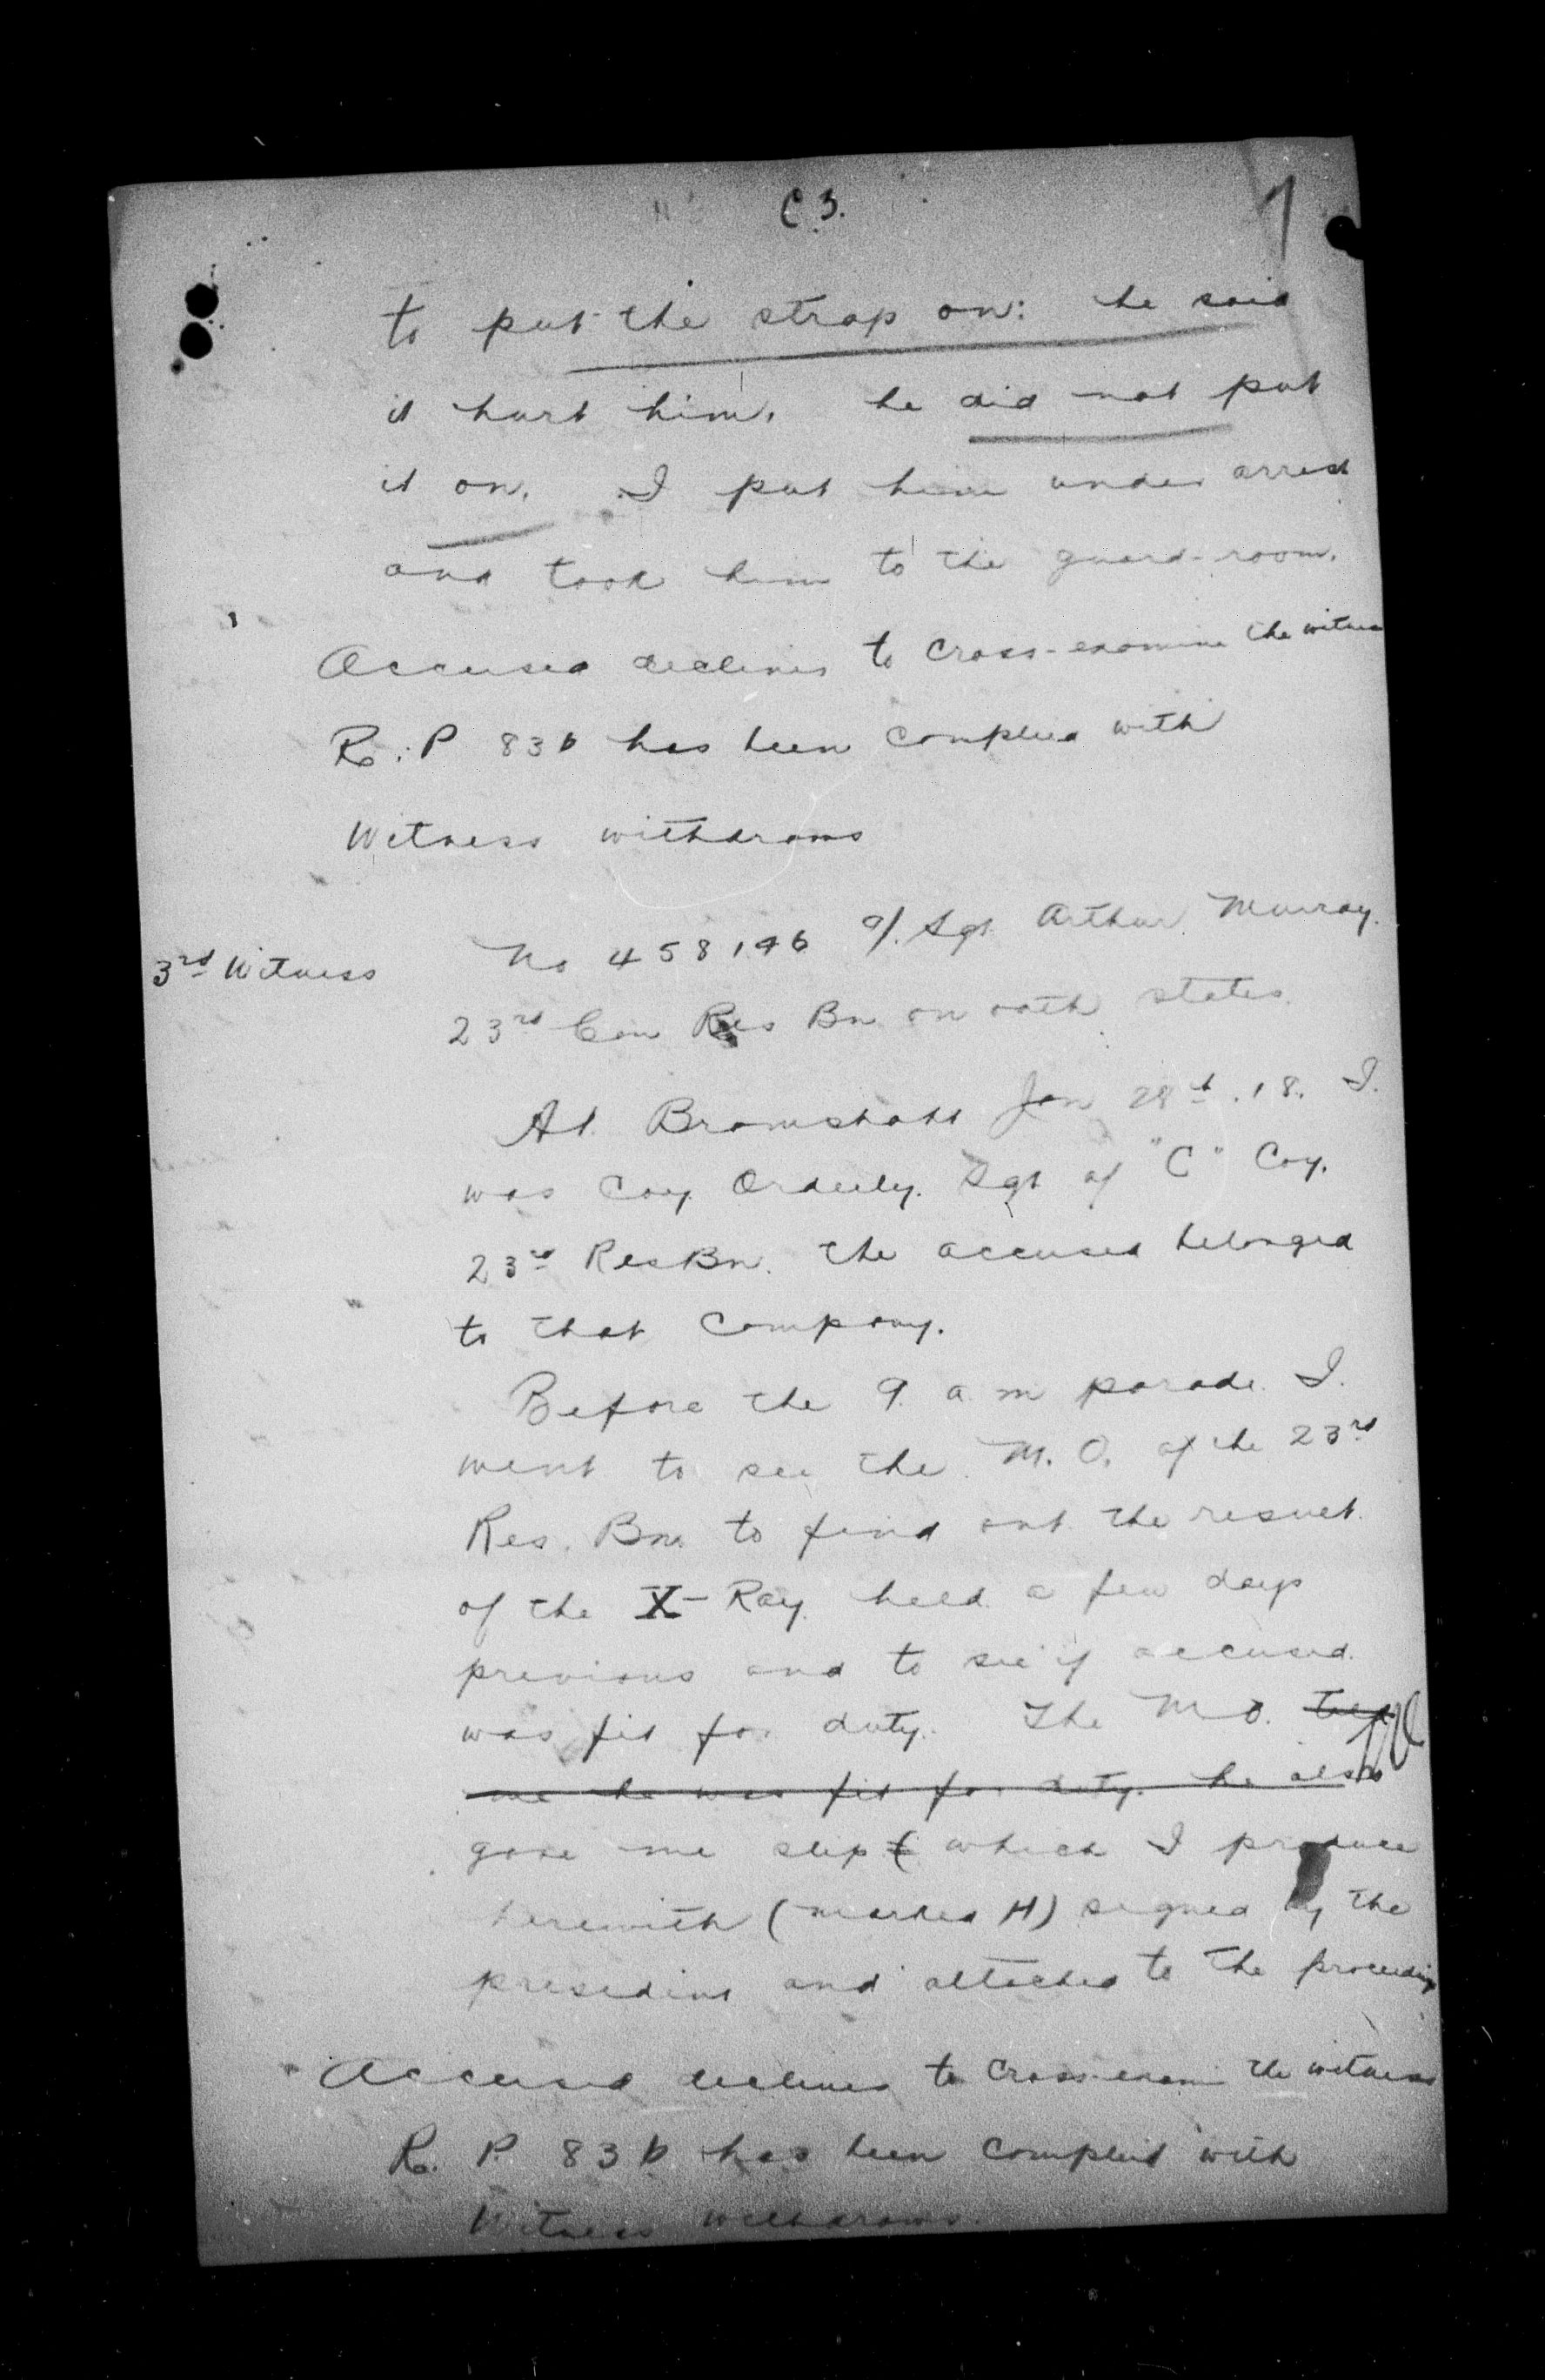 C 3.
7
to put the strap on: he said
it hurt him. he did not put
it on. I put him under arrest
and took him to the guard-room.
Accused declines to cross-examine the witness
R.P 83b has been complied with
Witness withdraws
3rd Witness No 458196 a/. Sgt Arthur Murray.
23rd Can Res Bn on oath states
At Bramshott Jan 28th. 18. I.
was Coy. Orderly. Sgt of "C" Coy.
23rd Res Bn. The accused belonged
to that Company.
Before the 9. a m parade. I.
went to see the M. O. of the 23rd
Res. Bn. to find out the result
of the X-Ray held a few days
previous and to see if accused
was fit for duty. The M O. told
me he was fit for duty. he also
gave me slip which I produce
herewith (marked H) signed by the
president and attached to the proceedings
Accused declines to cross-examine the witness
R. P. 83b has been complied with
Witness withdraws.